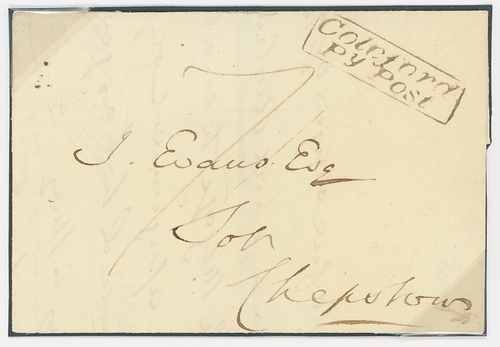 Coleford
Py Post
7
J. Evans Esq
Solr
Chepstow